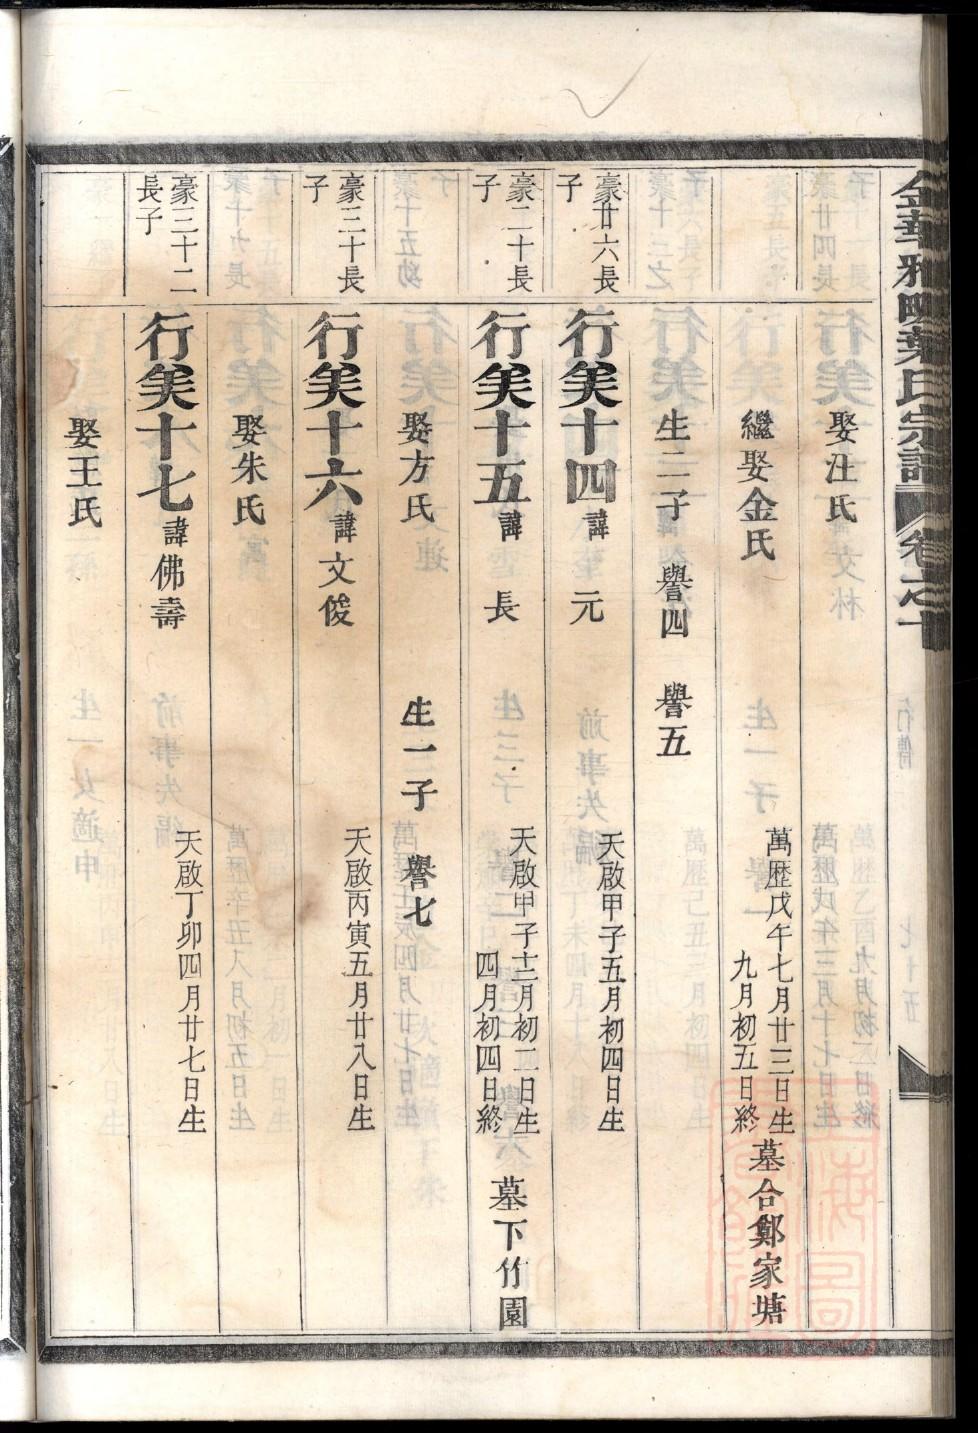 金華雅畈葉氏宗譜 卷之十
娶汪氏
繼娶金氏 萬歷戊午七月廿三日生 九月初五日終 墓合鄭家塘
生二子 譽四 譽五
豪廿六長子
行美十四 諱元 天啟甲子五月初四日生
豪二十長子
行美十五 諱長 天啟甲子十二月初二日生 四月初四日終 墓下竹園
娶方氏 生一子 譽七
豪三十長子
行美十六 諱文俊 天啟丙寅五月廿八日生
娶朱氏
豪三十二長子
行美十七 諱佛壽 天啟丁卯四月廿七日生
娶王氏